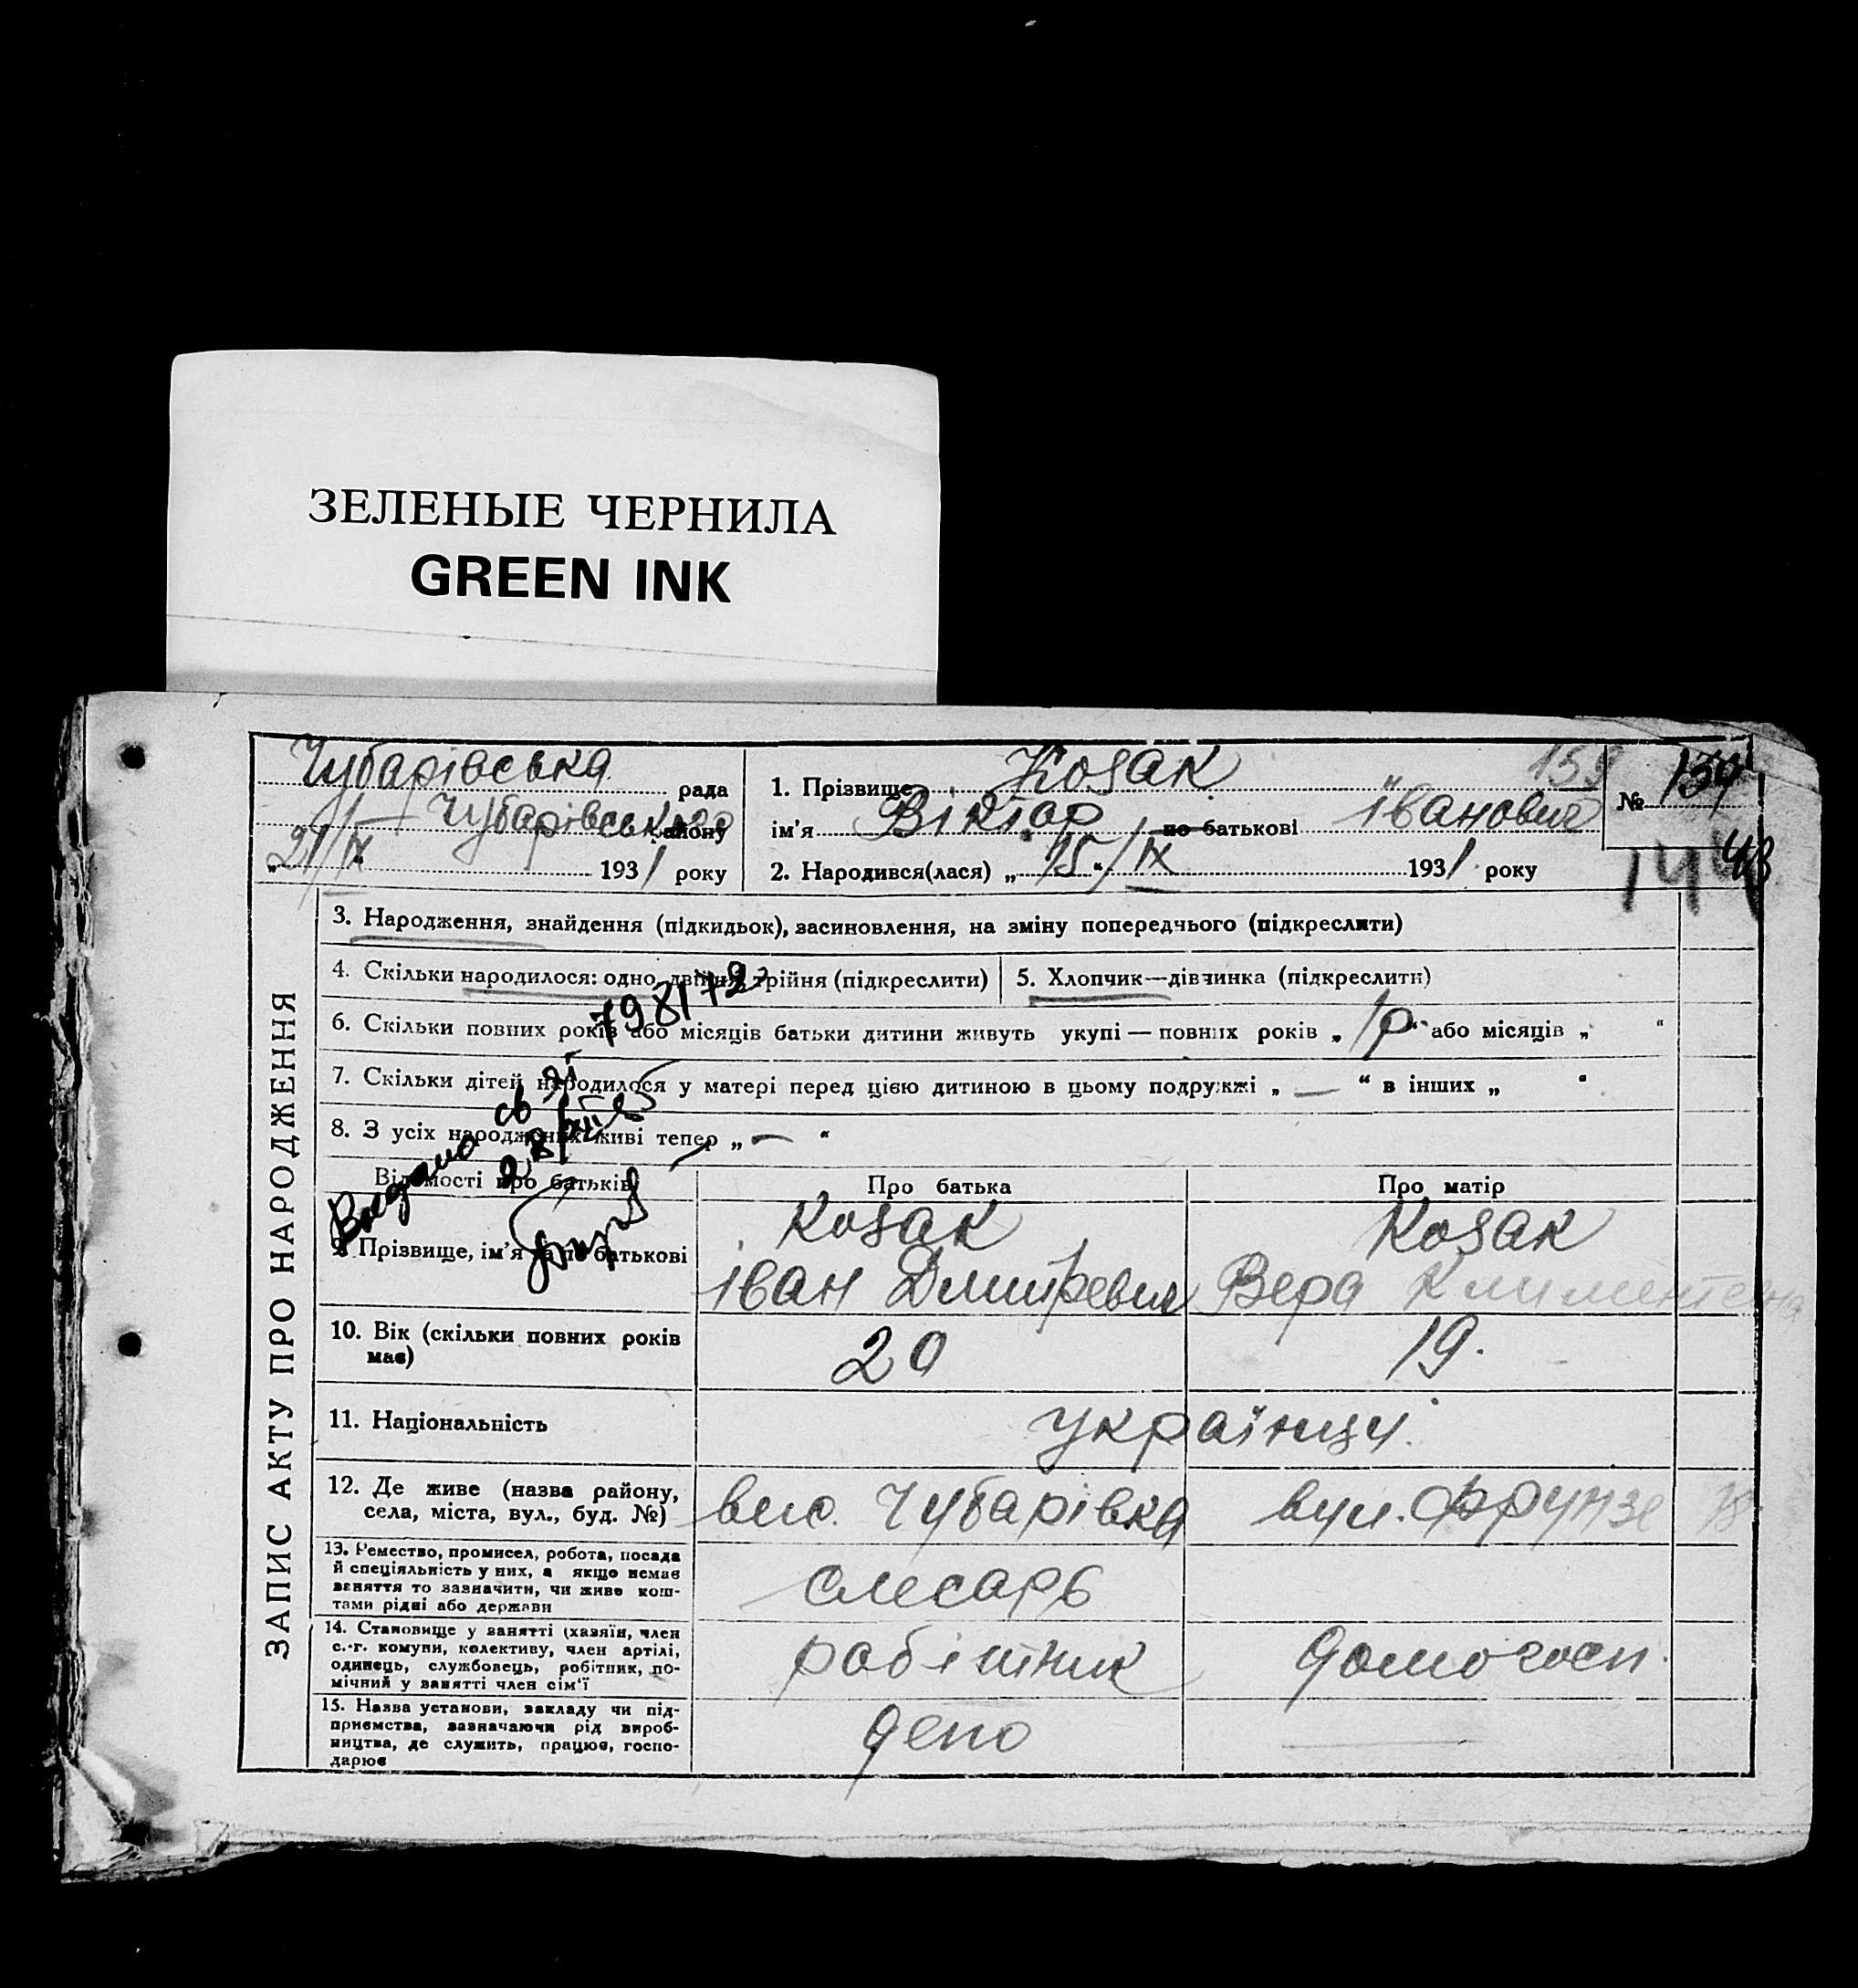 ЗЕЛЕНЫЕ ЧЕРНИЛА
GREEN INK
Чубарівська рада
Чубарівського району
„21/IX 1931 року
1. Прізвище Козак
ім'я Віктор по батькові Іванович
2. Народився(лася) „15“/IX 1931 року
159
№ 159
144
ЗАПИС АКТУ ПРО НАРОДЖЕННЯ
3. Народження, знайдення (підкидьок), засиновлення, на зміну попереднього (підкреслити)
4. Скільки народилося: одно, двійня, трійня (підкреслити)
5. Хлопчик—дівчинка (підкреслити)
6. Скільки повних років або місяців батьки дитини живуть укупі — повних років „1р“ або місяців „ “
7. Скільки дітей народилося у матері перед цією дитиною в цьому подружжі „—“ в інших „ “
8. З усіх народжених живі тепер „—“
Видано св
Відомості про батьків
Про батька
Про матір
9. Прізвище, ім'я та по батькові
Козак
Іван Дмитревич
Козак
Вера Климентевна
10. Вік (скільки повних років має)
20
19.
11. Національність
українці
12. Де живе (назва району,
села, міста, вул., буд. №)
вис. Чубарівка
вул. Фрунзе 18
13. Ремество, промисел, робота, посада
й спеціяльність у них, а якщо немає
заняття то зазначити, чи живе кош-
тами рідні або держави
слесарь
14. Становище у занятті (хазяїн, член
с.-г. комуни, колективу, член артілі,
одинець, службовець, робітник, по-
мічний у занятті член сім'ї
робітник
домогосп.
15. Назва установи, закладу чи під-
приємства, зазначаючи рід вироб-
ництва, де служить, працює, госпо-
дарює
депо